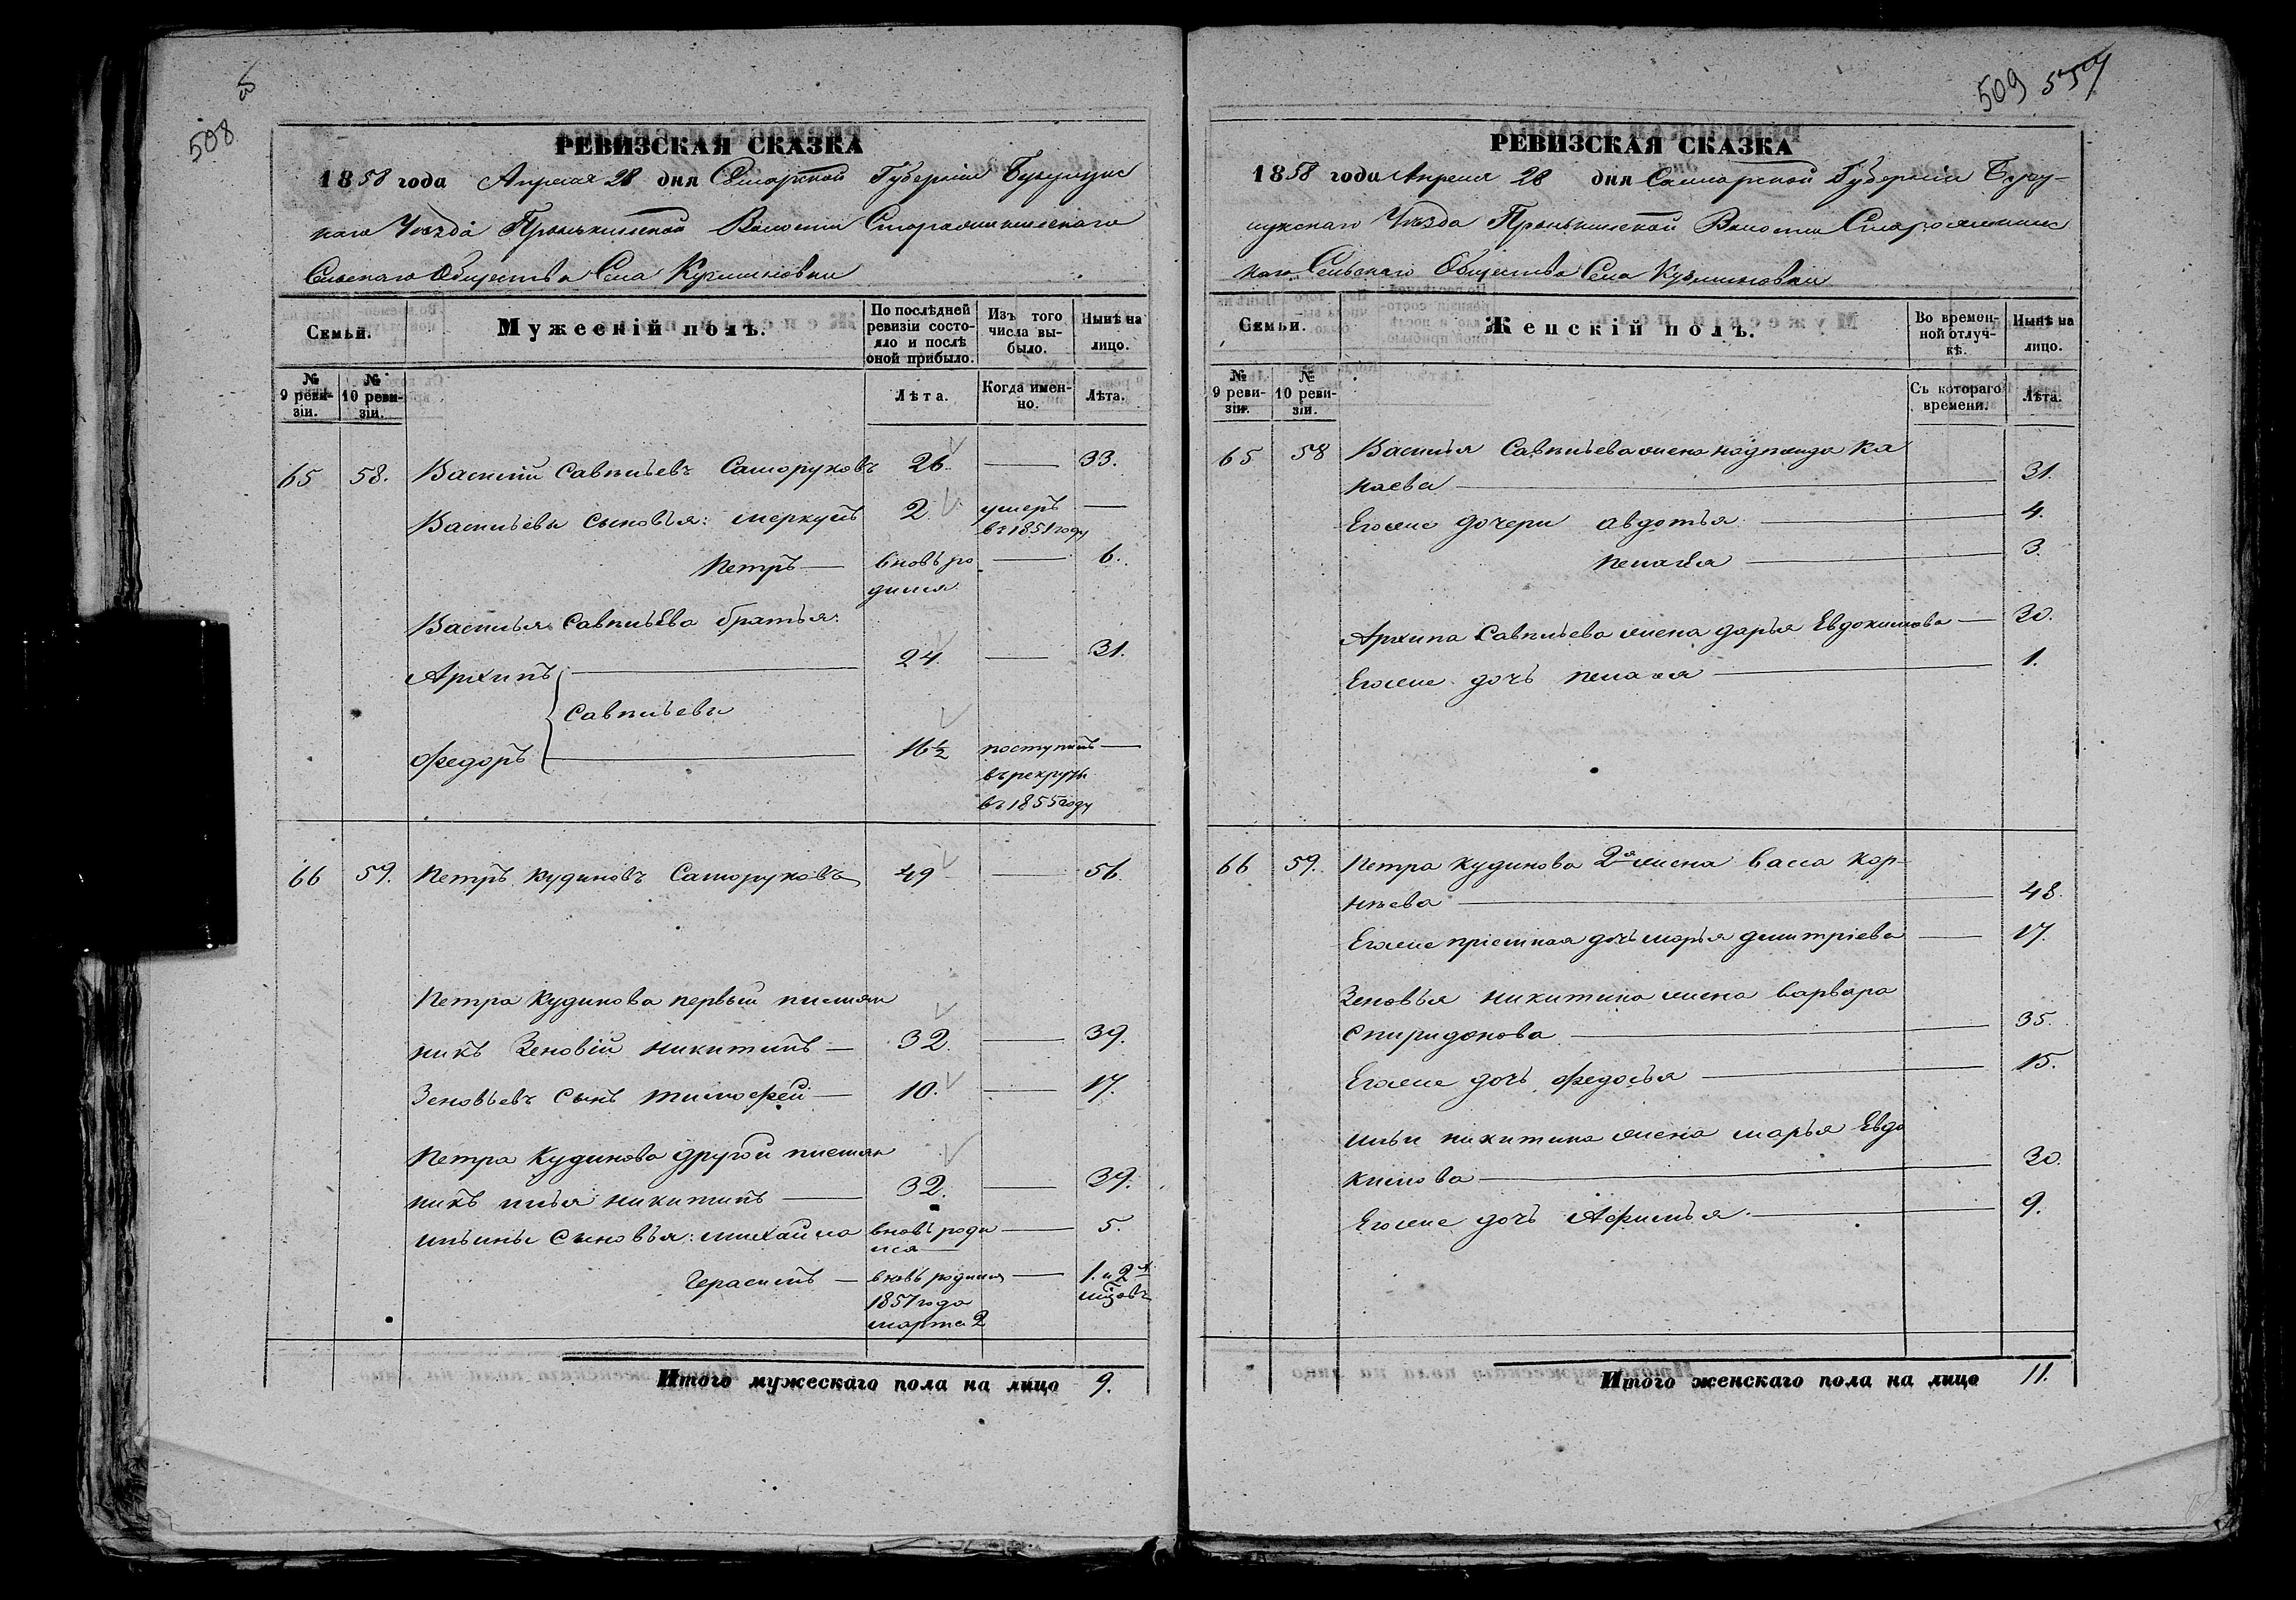 508
РЕВИЗСКАЯ СКАЗКА
1858 года Апреля 28 дня Самарской Губерніи Бузулукс
каго Уѣзда Пронькинской Волости Стараоникинскаго
Сельскаго Общества Села Кузминовки
Семьи.
Мужескій полъ.
По послѣдней ревизіи состояло и послѣ оной прибыло.
Изъ того числа выбыло.
Нынѣ на лицо.
№ 9 ревизіи.
№ 10 ревизіи.
Лѣта.
Когда именно.
Лѣта.
65 58. Василій Савельевъ Саморуковъ 26. — 33.
Васильевы сыновья: меркулъ 2. умеръ —
въ 1851 году
Петръ — вновь ро — 6.
дился
Василья Савельева братья:
Архипъ — 24. — 31.
Савельевы
Федоръ — 16½ поступилъ —
въ рекруты
въ 1855 году
66 59. Петръ Кудиновъ Саморуковъ 49 — 56.
Петра Кудинова первый племян
никъ Зеновій Никитинъ — 32. — 39.
Зеновьевъ сынъ Тимофей — 10. — 17.
Петра Кудинова другой племян
никъ илья никитинъ — 32. — 39.
ильины сыновья: михайла вновь роди — 5.
лся
Герасимъ — вновь родился — 1. и 2
1857 года
марта 2
Итого мужескаго пола на лицо 9.
509
РЕВИЗСКАЯ СКАЗКА
1858 года Апреля 28 дня Самарской Губерніи Бузу-
лукскаго Уѣзда Пронькинской Волости
каго Сельскаго Общества Села Кузминовки
Семьи.
Женскій полъ.
Во временной отлучкѣ.
Нынѣ на лицо.
№ 9 ревизіи.
№ 10 ревизіи.
Съ котораго времени.
Лѣта.
65 58 Василья Савельева жена
31.
Егоже дочери авдотья — 4.
пелагея — 3.
Архипа Савельева жена дарья Евдокимова — 30.
Егоже дочь пелагея — 1.
66 59. Петра Кудинова 2я жена васса кор-
нѣева — 48.
Егоже пріемная дочь марья дмитріева — 17.
Зеновья никитина жена варвара
спиридонова — 35.
Егоже дочь федосья — 15.
ильи никитина жена марья Евдо
кимова — 30.
Егоже дочь Афимья — 9.
Итого женскаго пола на лицо 11.